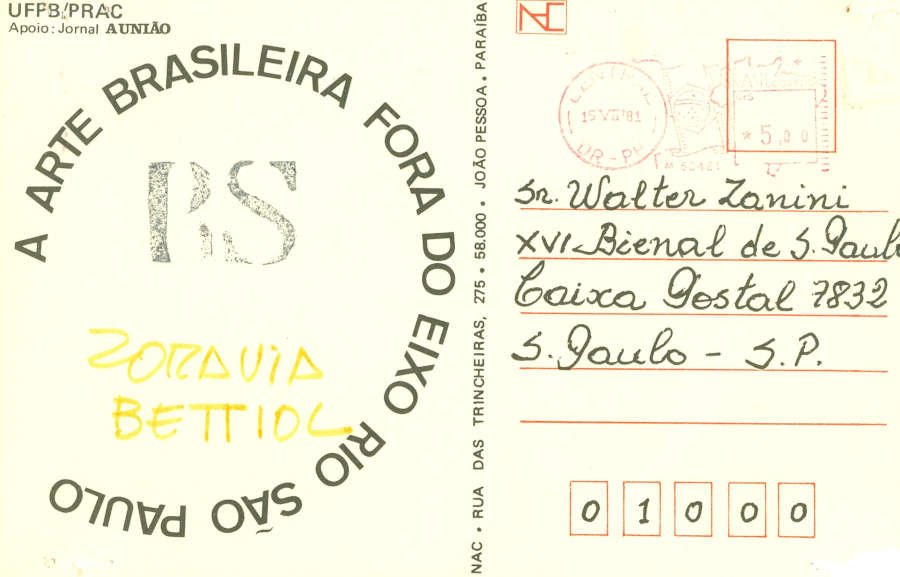 UFPB/PRAC
Apoio: Jornal A UNIÃO
A ARTE BRASILEIRA FORA DO EIXO RIO SÃO PAULO
RS
ZORAVIA
BETTIOL
NAC • RUA DAS TRINCHEIRAS, 275 • 58.000 • JOÃO PESSOA • PARAÍBA
CENTRAL
15 VII 81
* 5,00
Sr. Walter Zanini
XVI Bienal de S. Paulo
Caixa Postal 7832
S. Paulo - S.P.
0 1 0 0 0